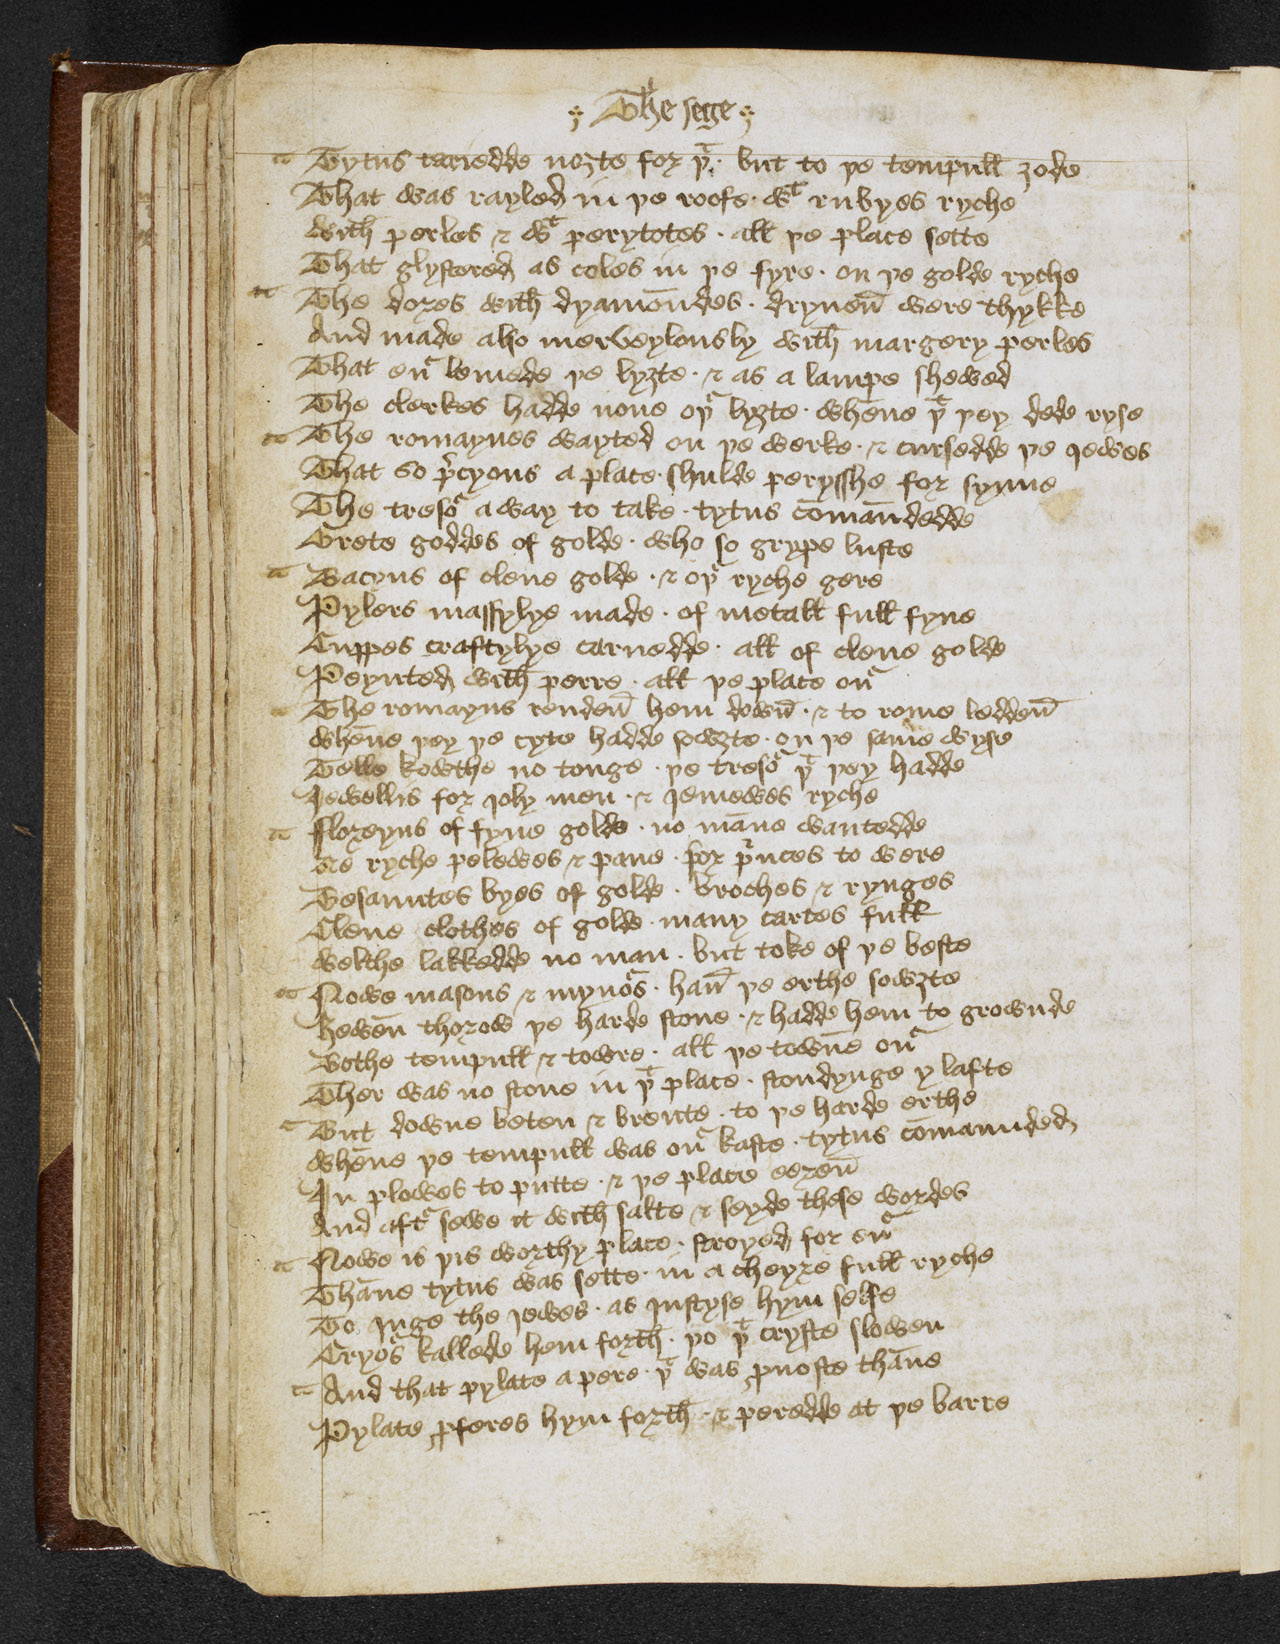 The sege
Tytus tariedde nozte for þt · but to þe tempull zode
That was rayled in þe roofe · wt rubyes ryche
with perles & wt perytotes · all þe place sette
That glystered as coles in þe fyre · on þe golde ryche
The dores with dyamōndes · dryuen̄ were thykke
And made also merveylously with margery perles
That eur̄ lemede þe lyzte · & as a lampe shewed
The clerkes hadde none oþr lyzte · whēne þt þey dede ryse
The romaynes wayted on þe werke · & cursedde þe iewes
That so pr̄cyous a place · shulde perysshe for synne
The tresor̄ away to take · tytus cōmāndedde
Grete goddes of golde · who so grype luste
Bacyns of clene golde · & oþr ryche gere
Pylers massylye made · of metall full fyne
Cuppes craftylye caruedde · all of clene golde
Peynted with perre · all þe place our̄
The romayns renden̄ hem down̄ · & to rome ledden̄
whēne þey þe cyte hadde sowzte · on þe same wyse
Telle kowthe no tonge · þe tresor̄ þt þey hadde
Jewellis for ioly men · & iemewes ryche
floreyns of fyne golde · no māne wantedde
Ne ryche pelewes & pane · for pr̄nces to were
Besauntes byes of golde · broches & rynges
Clene clothes of golde · many cartes full
welthe lakkedde no man · but toke of þe beste
Nowe masons & mynor̄s · han̄ þe erthe sowzte
Hewen̄ thorow þe harde stone · & hadde hem to grownde
Bothe tempull & towre · all þe towne our̄
Ther was no stone in þt place · stondynge y lafte
But downe beten & brente · to þe harde erthe
whēne þe tempull was our̄ kaste · tytus cōmaunded
In plowes to putte · & þe place eeren̄
And aftr̄ sewe it with salte & seyde these wordes
Nowe is þis worthy place · stroyed for eur̄
Thāne tytus was sette · in a cheyre full ryche
To iuge the iewes · as iustyse hym selfe
Cryor̄s kallede hem forth · þo þt cryste slowen
And that pylate apere · þt was ꝓuoste thāne
Pylate ꝓferes hym forth · & peredde at þe barre